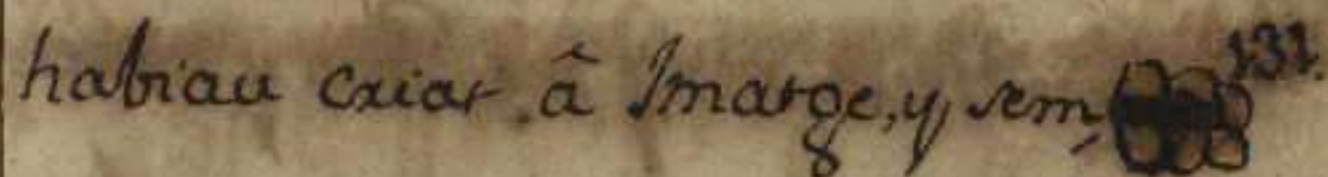 habiau criar â Imarge, y sem 131.